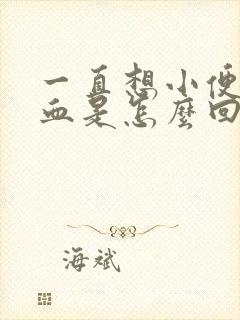 一直想小便
血是怎麼回
海斌